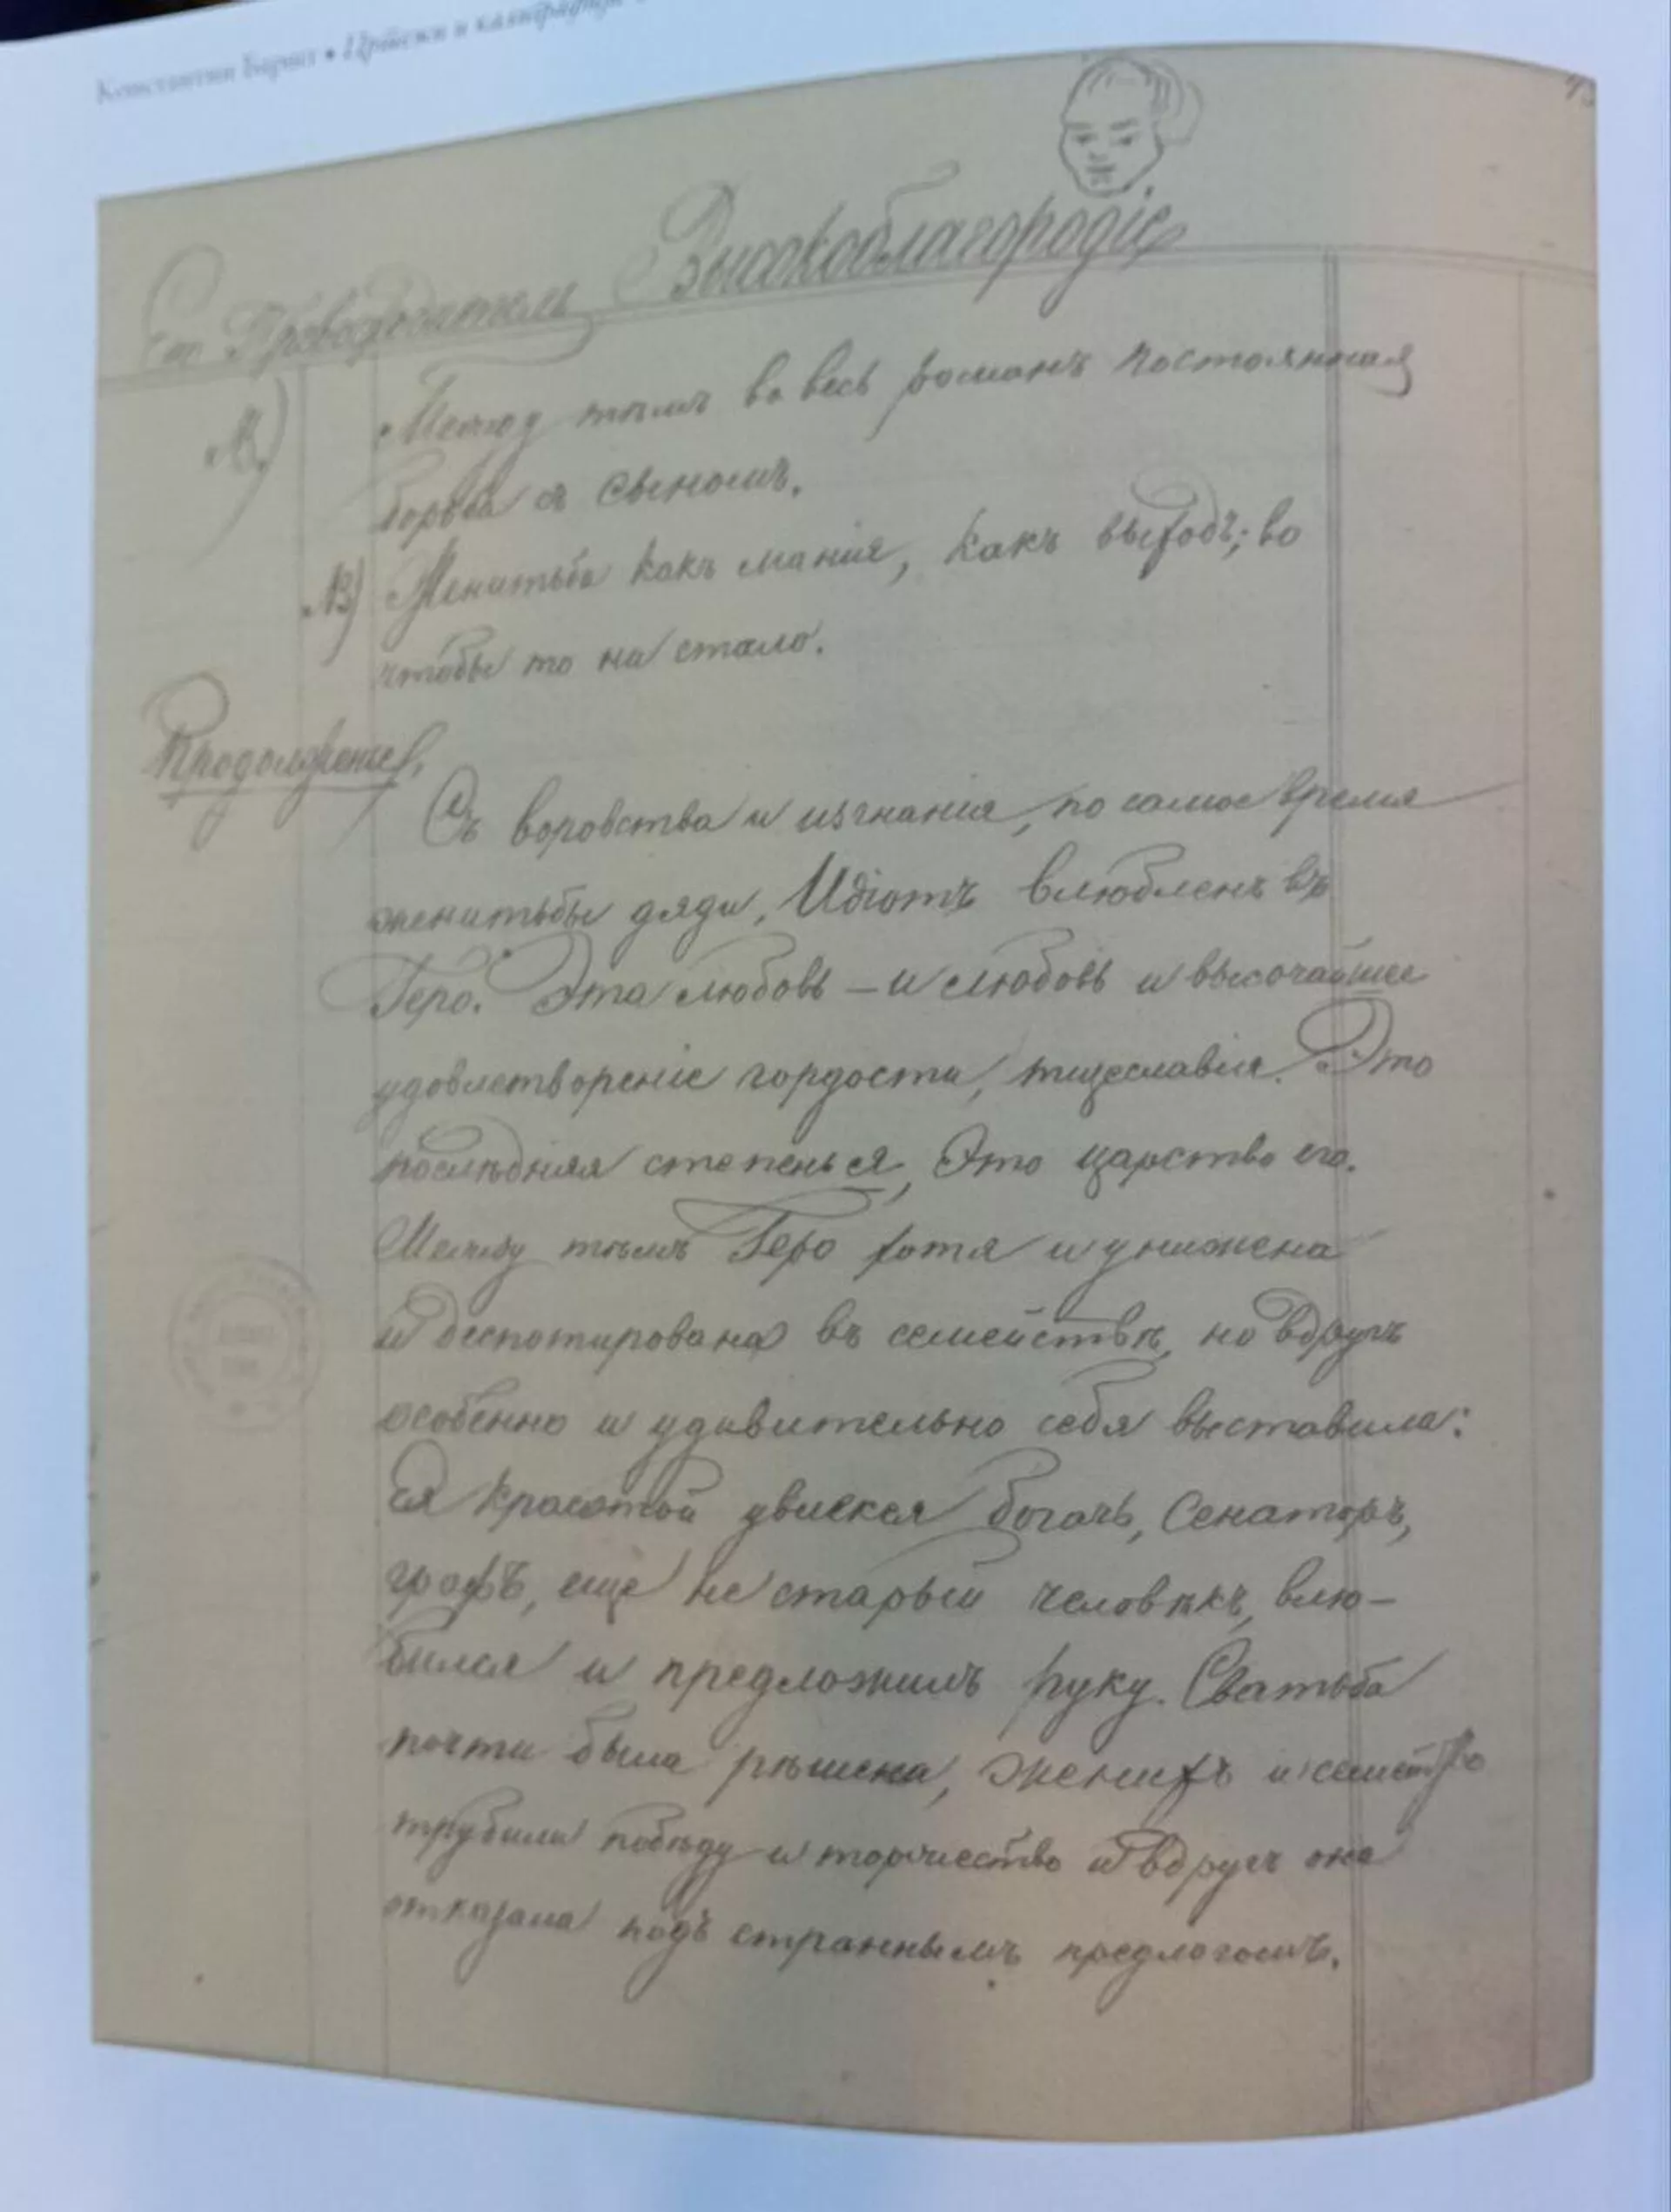 Константин Баршт • Цитаты и каллиграфия
Высокоблагородіе
Его Превосходительс
Между тѣмъ во весь романъ постоянная
борьба съ сыномъ.
Женитьба какъ манія, какъ выходъ; во
чтобы то ни стало.
Продолженіе.
Съ воровства и изгнанія, по самое время
женитьбы дяди, Идіотъ влюбленъ въ
Геро. Эта любовь – и любовь и высочайшее
удовлетвореніе гордости, тщеславія. Это
послѣдняя степень я, Это царство его.
Между тѣмъ Геро хотя и унижена
и деспотирована въ семействѣ, но вдругъ
особенно и удивительно себя выставила:
Ея красотой увлекся богачь, Сенаторъ,
графъ, еще не старый человѣкъ, влю–
бился и предложилъ руку. Сватьба
почти была рѣшена, женихъ и семейство
трубили побѣду и торжество и вдругъ она
отказала подъ страннымъ предлогомъ.